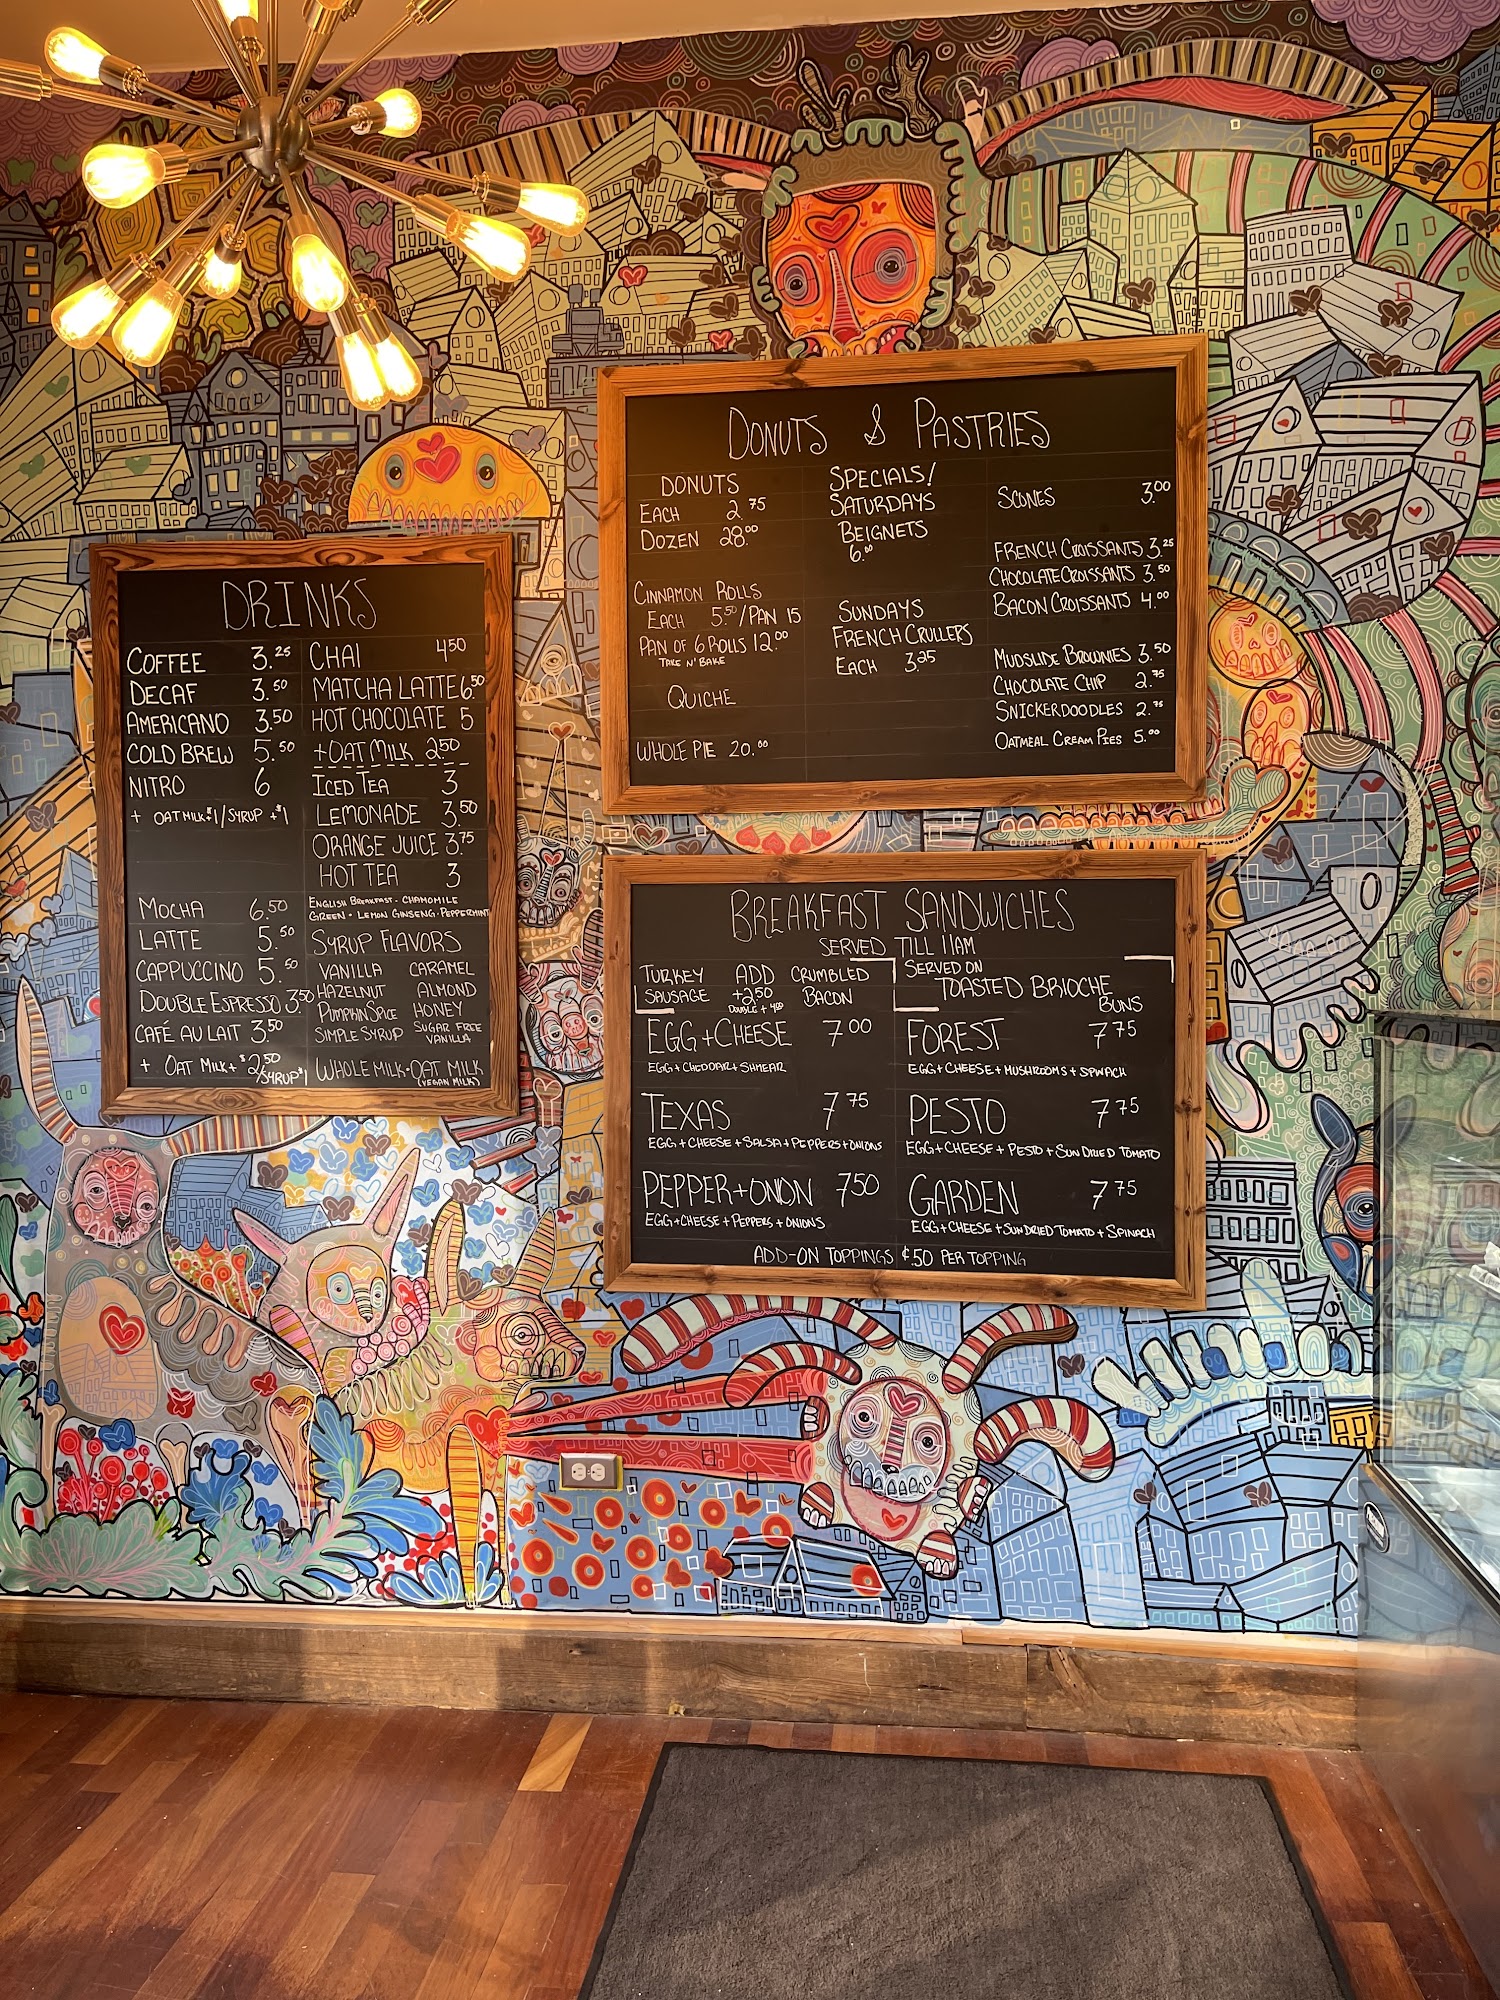 DRINKS
COFFEE 3.25
DECAF 3.50
AMERICANO 3.50
COLD BREW 5.50
NITRO 6
+ OAT MILK $1/SYRUP +$1
MOCHA 6.50
LATTE 5.50
CAPPUCCINO 5.50
DOUBLE ESPRESSO 3.50
CAFÉ AU LAIT 3.50
+ OAT MILK + $2.50
/SYRUP $1
CHAI 4.50
MATCHA LATTE 6.50
HOT CHOCOLATE 5
+OAT MILK 2.50
ICED TEA 3
LEMONADE 3.50
ORANGE JUICE 3.75
HOT TEA 3
ENGLISH BREAKFAST - CHAMOMILE
GREEN - LEMON GINSENG - PEPPERMINT
SYRUP FLAVORS
VANILLA CARAMEL
HAZELNUT ALMOND
PUMPKIN SPICE HONEY
SIMPLE SYRUP SUGAR FREE
VANILLA
WHOLE MILK · OAT MILK
(VEGAN MILK)
DONUTS & PASTRIES
DONUTS
EACH 2.75
DOZEN 28.00
CINNAMON ROLLS
EACH 5.50/PAN 15
PAN OF 6 ROLLS 12.00
TAKE N' BAKE
QUICHE
WHOLE PIE 20.00
SPECIALS!
SATURDAYS
BEIGNETS
6.00
SUNDAYS
FRENCH CRULLERS
EACH 3.25
SCONES 3.00
FRENCH CROISSANTS 3.25
CHOCOLATE CROISSANTS 3.50
BACON CROISSANTS 4.00
MUDSLIDE BROWNIES 3.50
CHOCOLATE CHIP 2.75
SNICKERDOODLES 2.75
OATMEAL CREAM PIES 5.00
BREAKFAST SANDWICHES
SERVED TILL 11AM
TURKEY ADD CRUMBLED
SAUSAGE +2.50 BACON
DOUBLE + 4.00
SERVED ON
TOASTED BRIOCHE
BUNS
EGG+CHEESE 7.00
EGG + CHEDDAR + SHMEAR
TEXAS 7.75
EGG + CHEESE + SALSA + PEPPERS + ONIONS
PEPPER+ONION 7.50
EGG + CHEESE + PEPPERS + ONIONS
FOREST 7.75
EGG + CHEESE + MUSHROOMS + SPINACH
PESTO 7.75
EGG + CHEESE + PESTO + SUN DRIED TOMATO
GARDEN 7.75
EGG + CHEESE + SUN DRIED TOMATO + SPINACH
ADD-ON TOPPINGS ¢.50 PER TOPPING